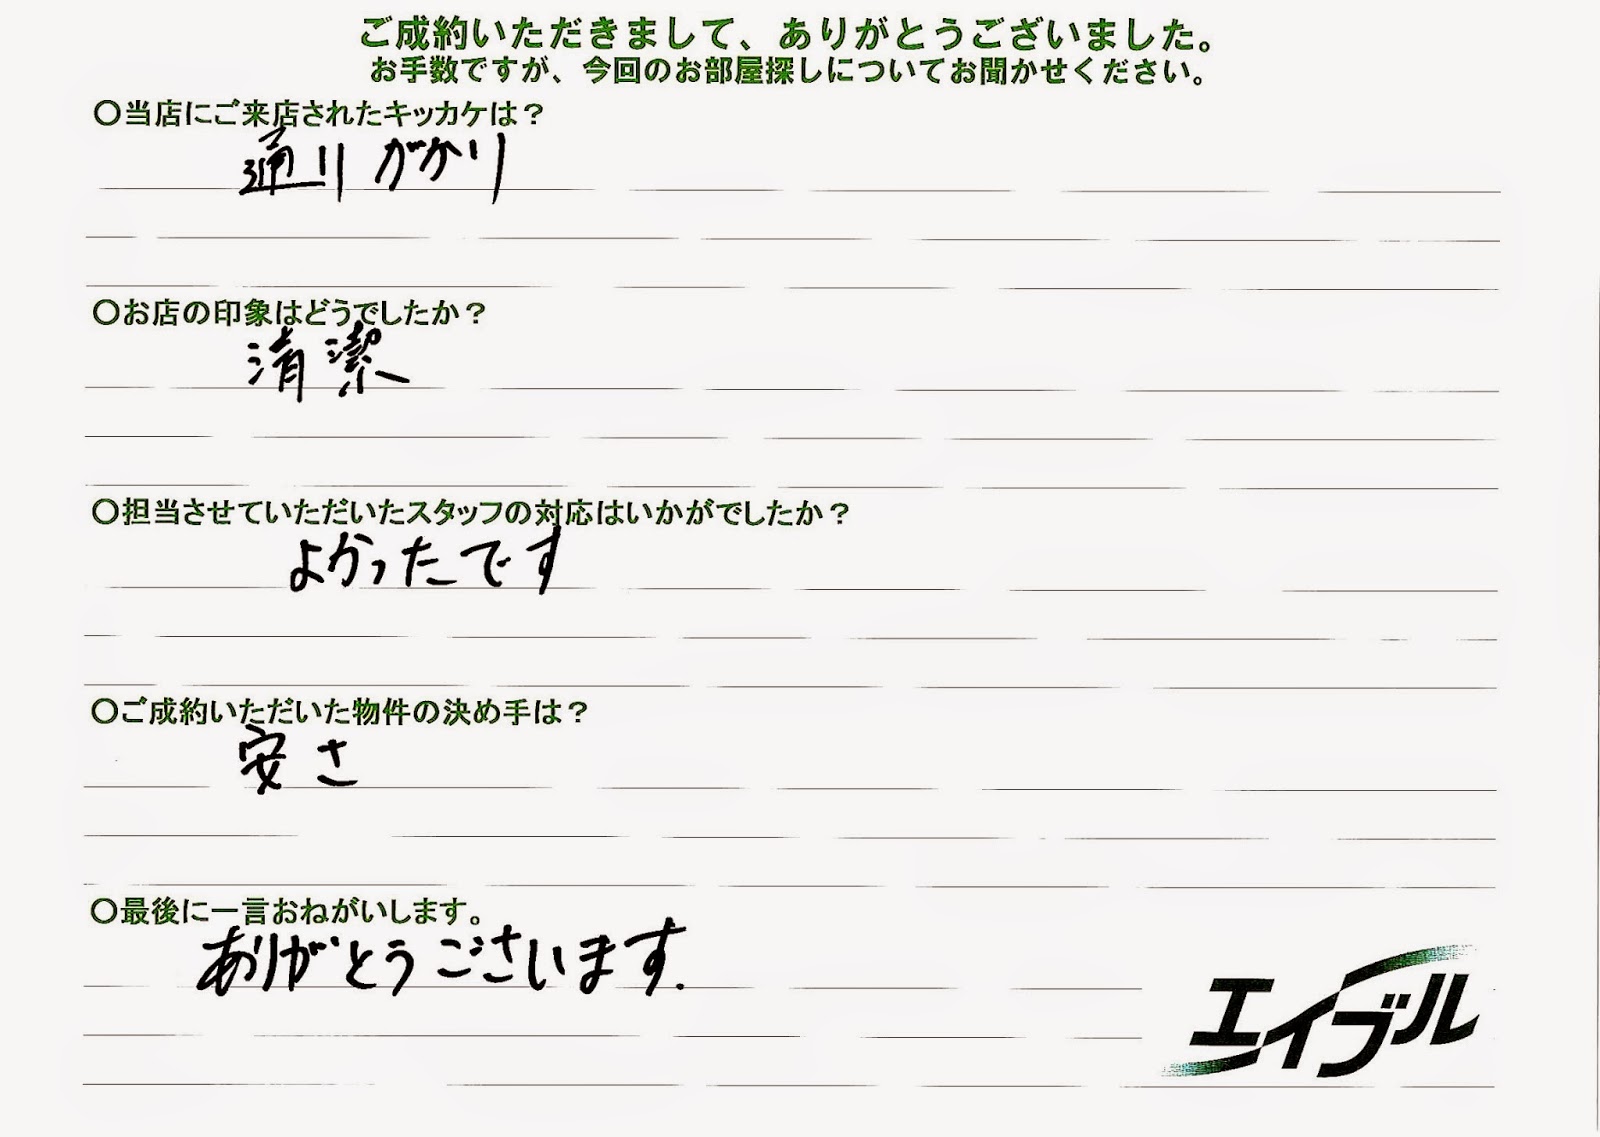 ご成約いただきまして、ありがとうございました。
お手数ですが、今回のお部屋探しについてお聞かせください。
〇当店にご来店されたキッカケは？
通りがかり
〇お店の印象はどうでしたか？
清潔
〇担当させていただいたスタッフの対応はいかがでしたか？
よかったです
〇ご成約いただいた物件の決め手は？
安さ
〇最後に一言おねがいします。
ありがとうございます.
エイブル